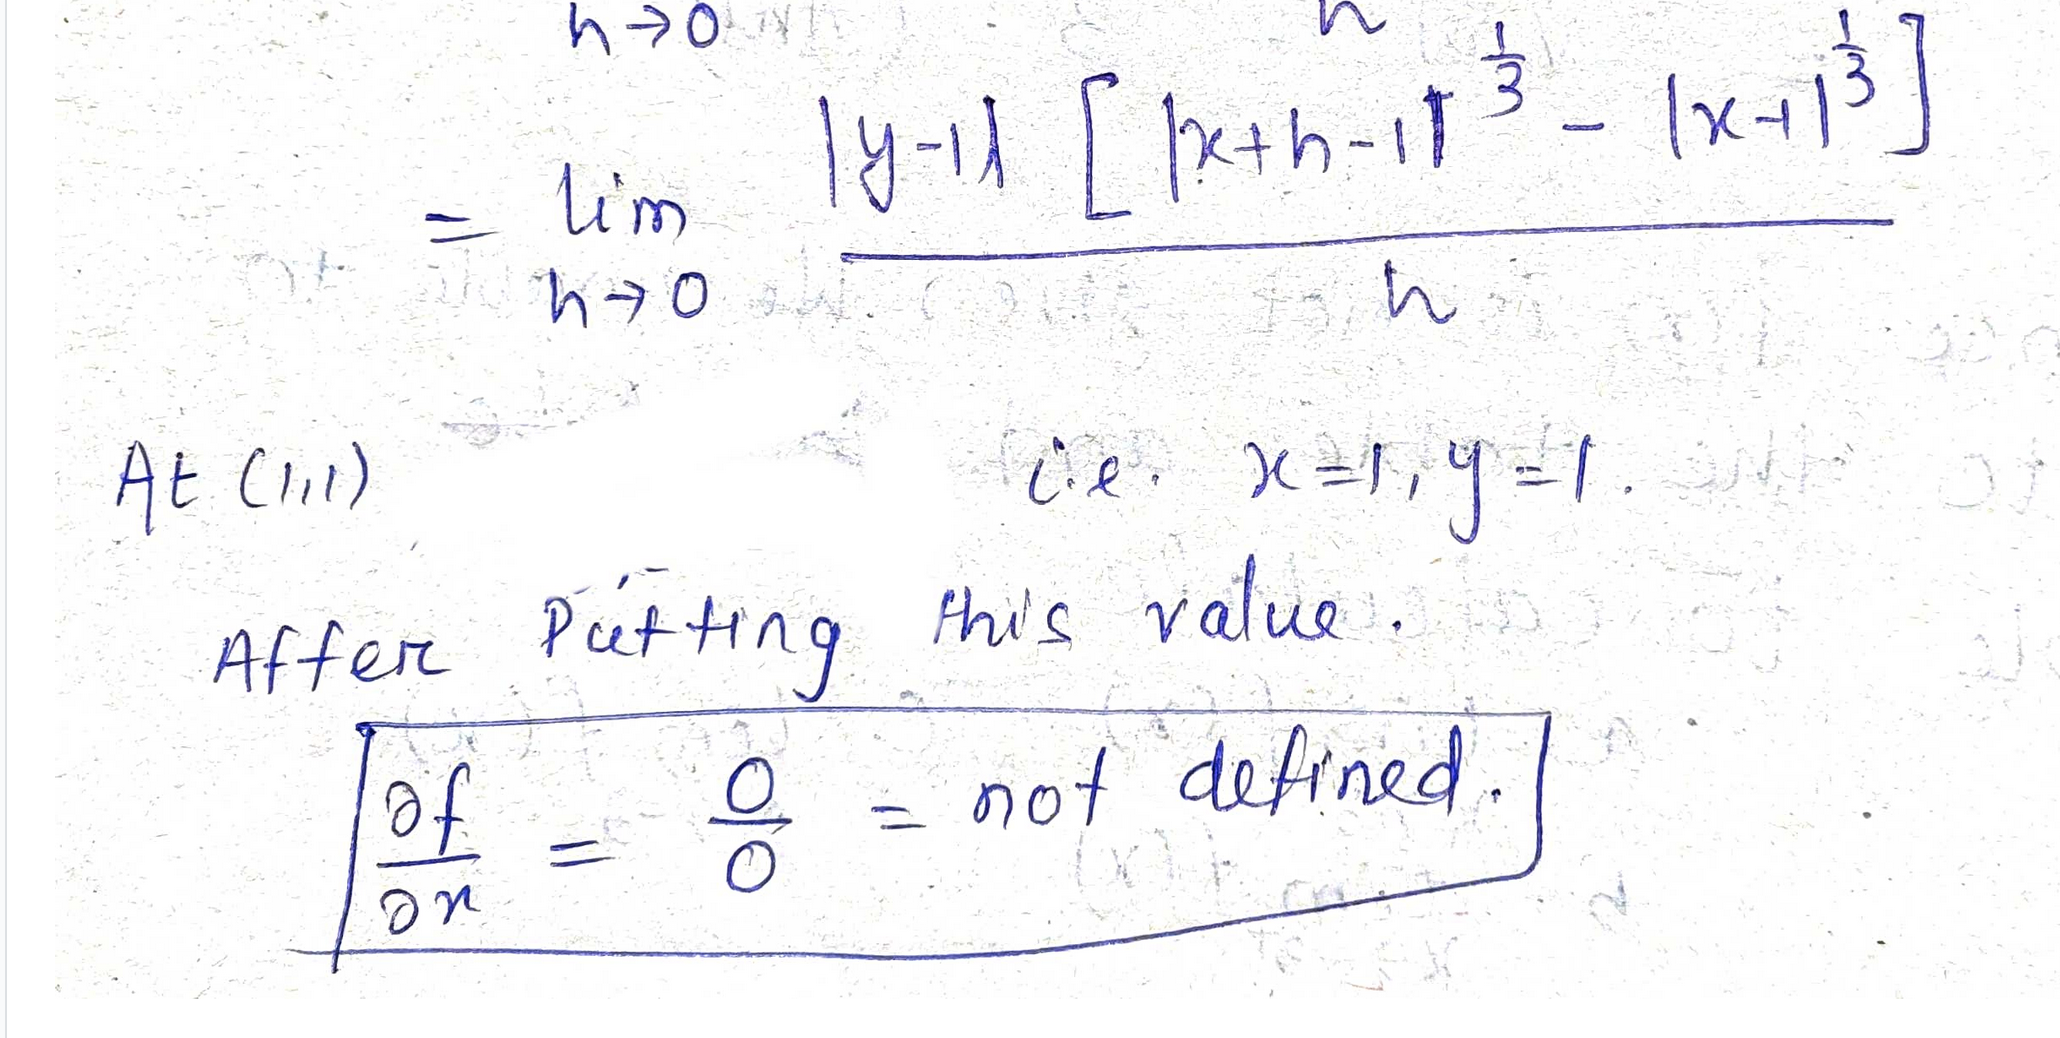 h→0 h
= lim |y-1| [ |x+h-1|^{1/3} - |x-1|^{1/3} ]
h→0 h
At (1,1) i.e. x=1, y=1.
After Putting this value.
∂f/∂x = 0/0 = not defined.